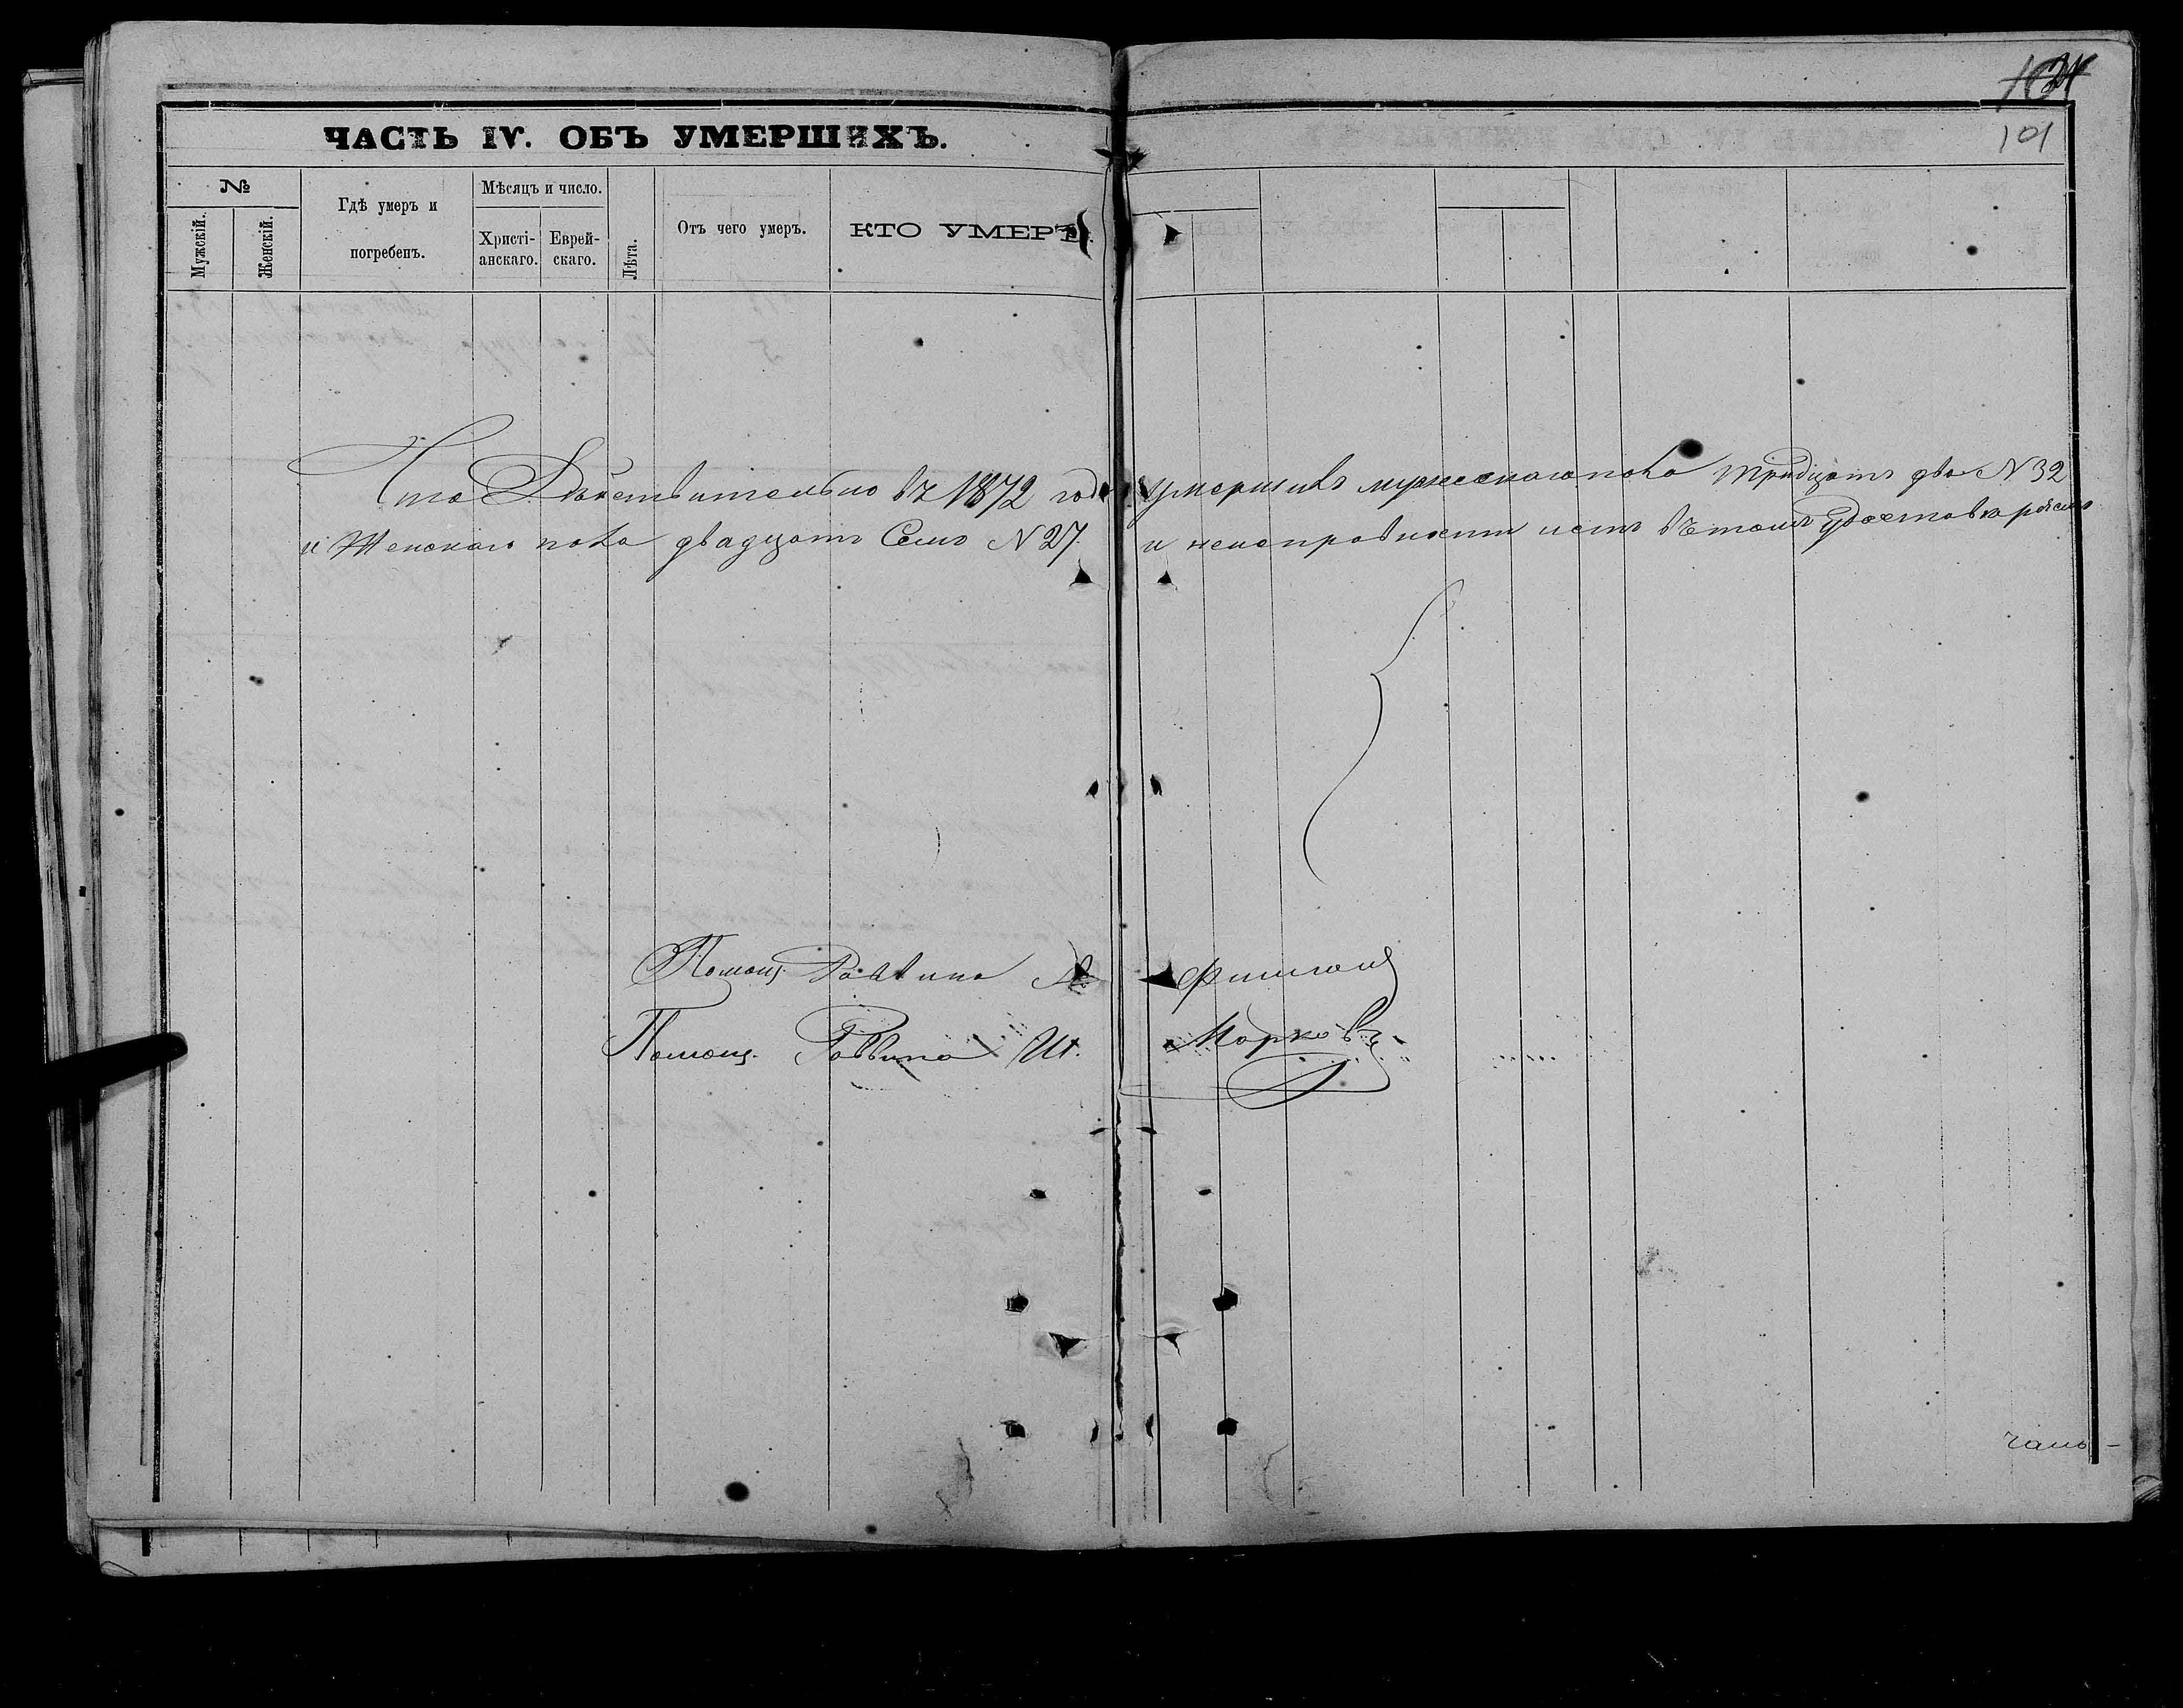 101
ЧАСТЬ IV. ОБЪ УМЕРШИХЪ.
№
Мужскій.
Женскій.
Гдѣ умеръ и
погребенъ.
Мѣсяцъ и число.
Христі-
анскаго.
Еврей-
скаго.
Лѣта.
Отъ чего умеръ.
КТО УМЕРЪ.
Что Дѣйствительно въ 1872 году умершихъ мужескаго пола тридцать два N 32
и Женскаго пола двадцать Семь N 27. и неисправности нетъ въ томъ
Помощ. Раввина Фишманъ
Помощ. Раввина И. Марковъ